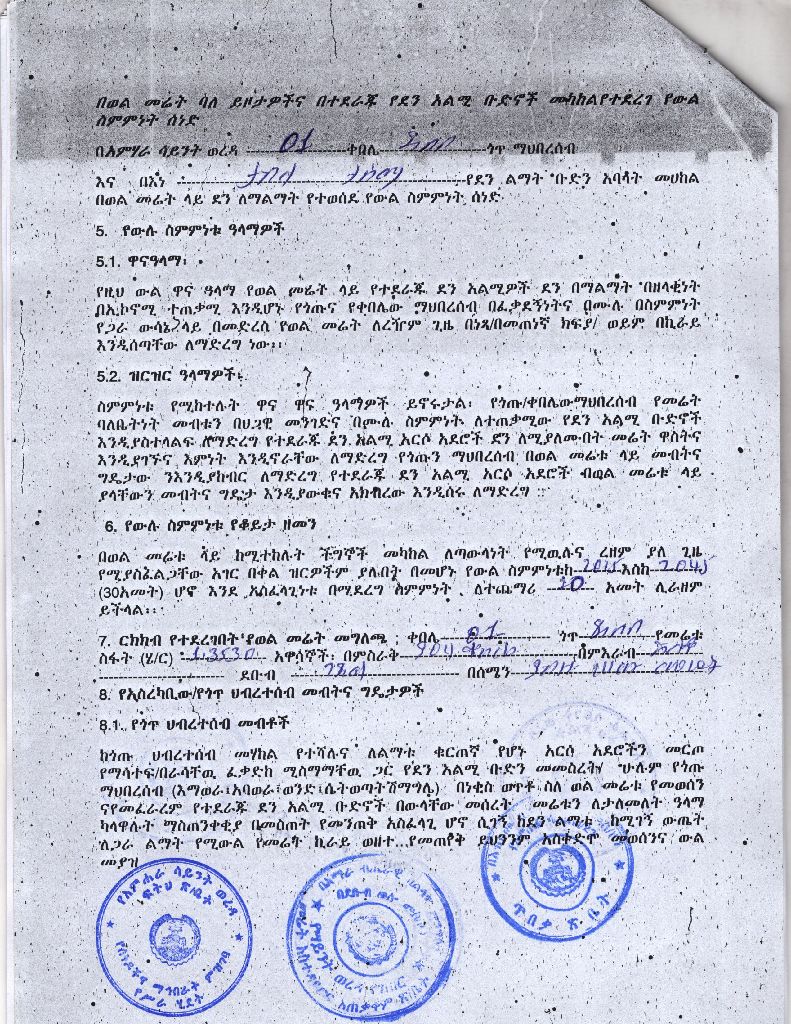 በወል መሬት ባለ ይዞታዎችና በተደራጁ የደን አልሚ ቡድኖች መካከል የተደረገ የውል
ስምምነት ሰነድ
በአምሃራ ሳይንት ወረዳ 01 ቀበሌ ጎጥ ማህበረሰብ
እና በእነ የደን ልማት ቡድን አባላት መሀከል
በወል መሬት ላይ ደን ለማልማት የተወሰደ የውል ስምምነት ሰነድ
5. የውሉ ስምምነቱ ዓላማዎች
5.1. ዋና ዓላማ፡
የዚህ ውል ዋና ዓላማ የወል መሬት ላይ የተደራጁ ደን አልሚዎች ደን በማልማት በዘላቂነት
በኢኮኖሚ ተጠቃሚ እንዲሆኑ የጎጡና የቀበሌው ማህበረሰብ በፈቃደኝነትና በሙሉ በስምምነት
የጋራ ውሳኔ ላይ በመድረስ የወል መሬት ለረዥም ጊዜ በነጻ/በመጠነኛ ክፍያ/ ወይም በኪራይ
እንዲሰጣቸው ለማድረግ ነው፡፡
5.2. ዝርዝር ዓላማዎች፡
ስምምነቱ የሚከተሉት ዋና ዋና ዓላማዎች ይኖሩታል፡ የጎጡ/ቀበሌው ማህበረሰብ የመሬት
ባለቤትነት መብቱን በህጋዊ መንገድና በሙሉ ስምምነት ለተጠቃሚው የደን አልሚ ቡድኖች
እንዲያስተላልፍ ለማድረግ የተደራጁ ደን አልሚ አርሶ አደሮች ደን ለሚያለሙበት መሬት ዋስትና
እንዲያገኙና እምነት እንዲኖራቸው ለማድረግ የጎጡን ማህበረሰብ በወል መሬቱ ላይ መብትና
ግዴታው ንእንዲያከብር ለማድረግ የተደራጁ ደን አልሚ አርሶ አደሮች ብወል መሬቱ ላይ
ያላቸውን መብትና ግዴታ እንዲያውቁና አክብረው እንዲሰሩ ለማድረግ ፡፡
6. የውሉ ስምምነቱ የቆይታ ዘመን
በወል መሬቱ ላይ ከሚተከሉት ችግኞች መካከል ለጣውላነት የሚዉሉና ረዘም ያለ ጊዜ
የሚያስፈልጋቸው አገር በቀል ዝርዎችም ያሉበት በመሆኑ የውል ስምምነቱ ከ 2015 እስከ 2045
(30አመት) ሆኖ እንደ አስፈላጊነቱ በሚደረግ ስምምነት ለተጨማሪ 20 አመት ሊራዘም
ይችላል፡፡
7. ርክክብ የተደረገበት የወል መሬት መግለጫ ; ቀበሌ 01 ጎጥ የመሬቱ
ስፋት (ሄ/ር) 1.3530 አዋሳኞች፡ በምስራቅ በምእራብ
ደቡብ በሰሜን
8. የአስረካቢው/የጎጥ ህብረተሰብ መብትና ግዴታዎች
8.1. የጎጥ ህብረተሰብ መብቶች
ከጎጡ ህብረተሰብ መሃከል የተሻሉና ለልማቱ ቁርጠኛ የሆኑ አርሶ አደሮችን መርጦ
የማሳተፍ/በራሳቸዉ ፈቃድከ ሚስማማቸዉ ጋር የደን አልሚ ቡድን መመስረት/ ሁሉም የጎጡ
ማህበረሰብ (እማወራ፣አባወራ፣ወንድ፣ሴትወጣት ሽማግሌ) በነቂስ ወጥቶ ስለ ወል መሬቱ የመወሰን
ናየመፈራረም የተደራጁ ደን አልሚ ቡድኖች በውላቸው መሰረት መሬቱን ለታለመለት ዓላማ
ካላዋሉት ማስጠንቀቂያ በመስጠት የመንጠቅ አስፈላጊ ሆኖ ሲገኝ ከደን ልማቱ ከሚገኝ ውጤት
ለጋራ ልማት የሚውል የመሬት ኪራይ ወዘተ...የመጠየቅ ይህንንም አስቀድሞ መወሰንና ውል
መያዝ
የአምሐራ ሳይንት ወረዳ
ፍትህ ጽ/ቤት
ጥበቃ ጽ/ቤት